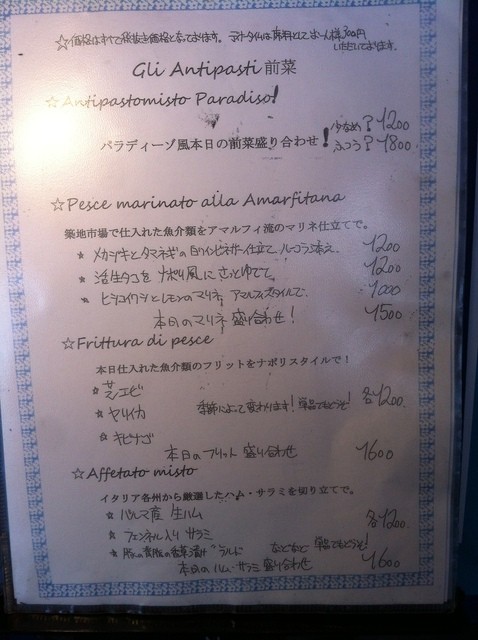 ☆価格はすべて税抜き価格となっております。 ディナータイムは席料としてお一人様300円
いただいております。
Gli Antipasti 前菜
☆Antipastomisto Paradiso!
パラディーゾ風本日の前菜盛り合わせ! 少なめ? 1200
ふつう? 1800
☆Pesce marinato alla Amarfitana
築地市場で仕入れた魚介類をアマルフィ流のマリネ仕立てで。
★ メカジキとタマネギの白ワインビネガー仕立て、ルーコラ添え 1200
★ 活生タコをナポリ風にさっとゆでて。 1200
★ ヒシコイワシとレモンのマリネ アマルフィスタイルで 1000
本日のマリネ 盛り合わせ! 1500
☆Frittura di pesce
本日仕入れた魚介類のフリットをナポリスタイルで!
☆ 芝エビ
☆ ヤリイカ 季節によって変わります! 単品でもどうぞ! 各1200
☆ キビナゴ
本日のフリット 盛り合わせ 1600
☆Affetato misto
イタリア各州から厳選したハム・サラミを切り立てで。
☆ パルマ産 生ハム 各1200
☆ フェンネル入り サラミ
☆ 豚の背脂の香草漬け ラルド などなど 単品でもどうぞ!
本日のハム・サラミ 盛り合わせ 1600